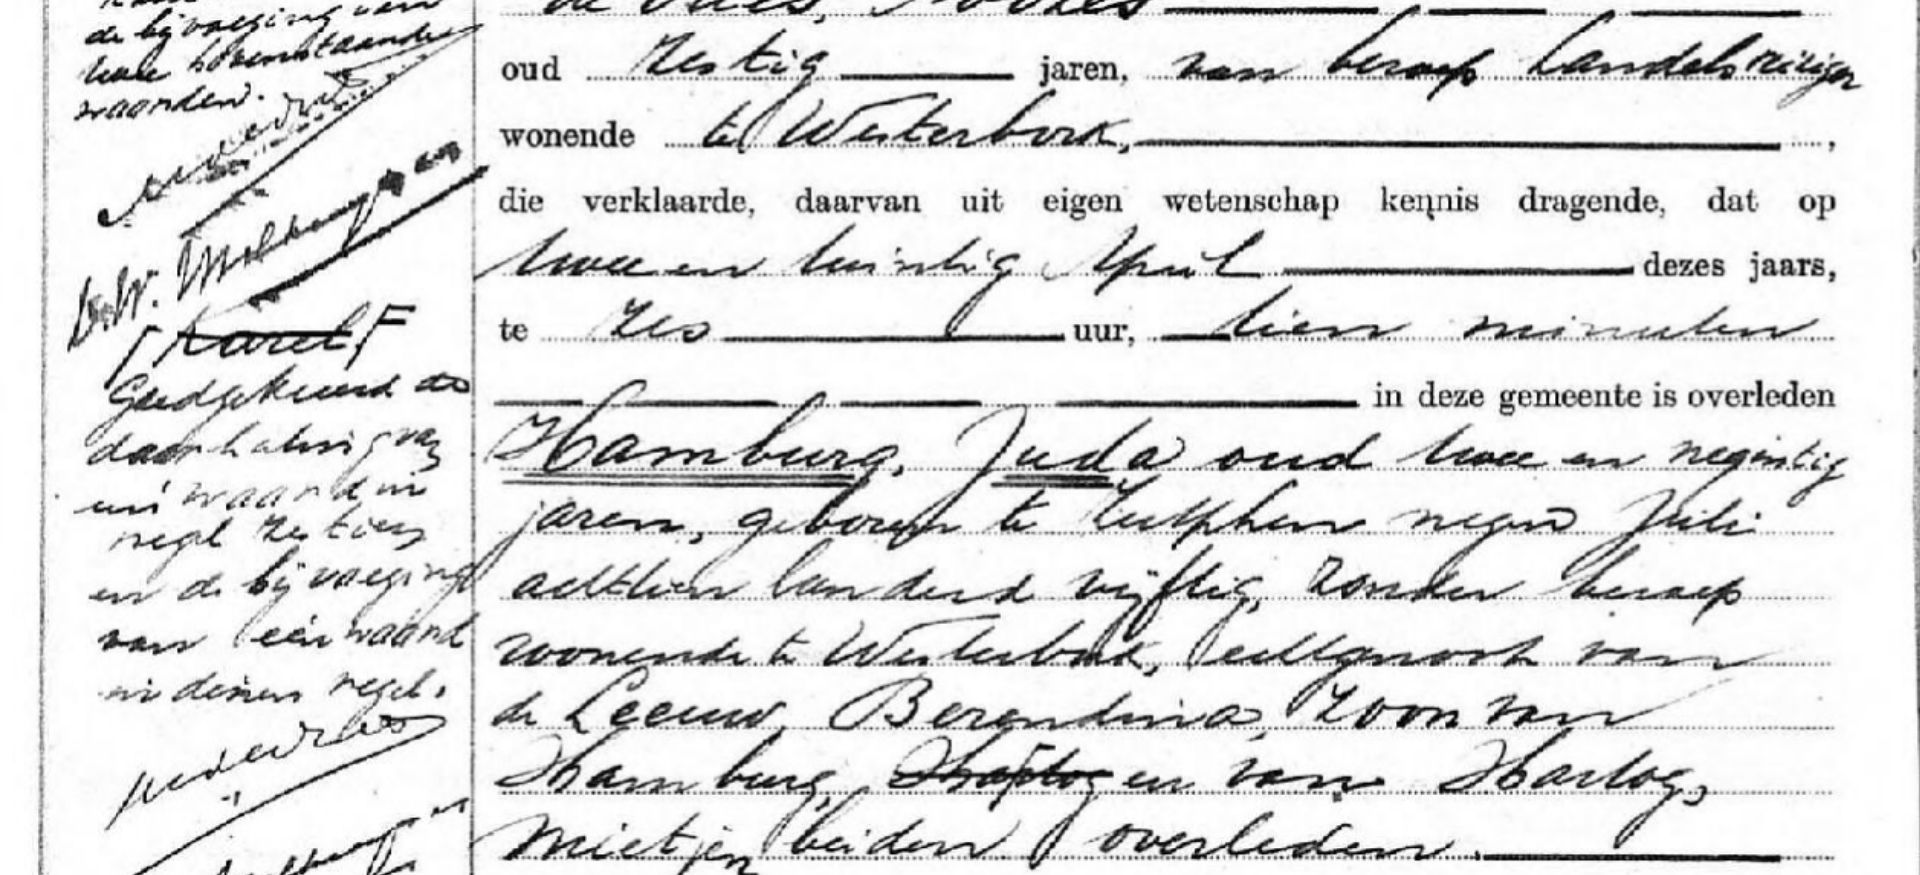 de bijvoeging van
twee bovenstaande
waarden.
de Vries,
oud Zestig jaren, van beroep handelsreiziger
wonende te Westerbork,
die verklaarde, daarvan uit eigen wetenschap kennis dragende, dat op
twee en twintig April dezes jaars,
te zes uur, tien minuten
in deze gemeente is overleden
Hamburg, Juda oud twee en negentig
jaren, geboren te Zutphen negen Juli
achttien honderd vijftig, zonder beroep
wonende te Westerbork, echtgenoot van
de Leeuw, Berendina, zoon van
Hamburg, Hartog en van Hartogs,
Mietjen beiden overleden.
Karel F
Goedgekeurd de
doorhaling van
één waard in
regel zestien
en de bijvoeging
van één waard
in dienen regel.